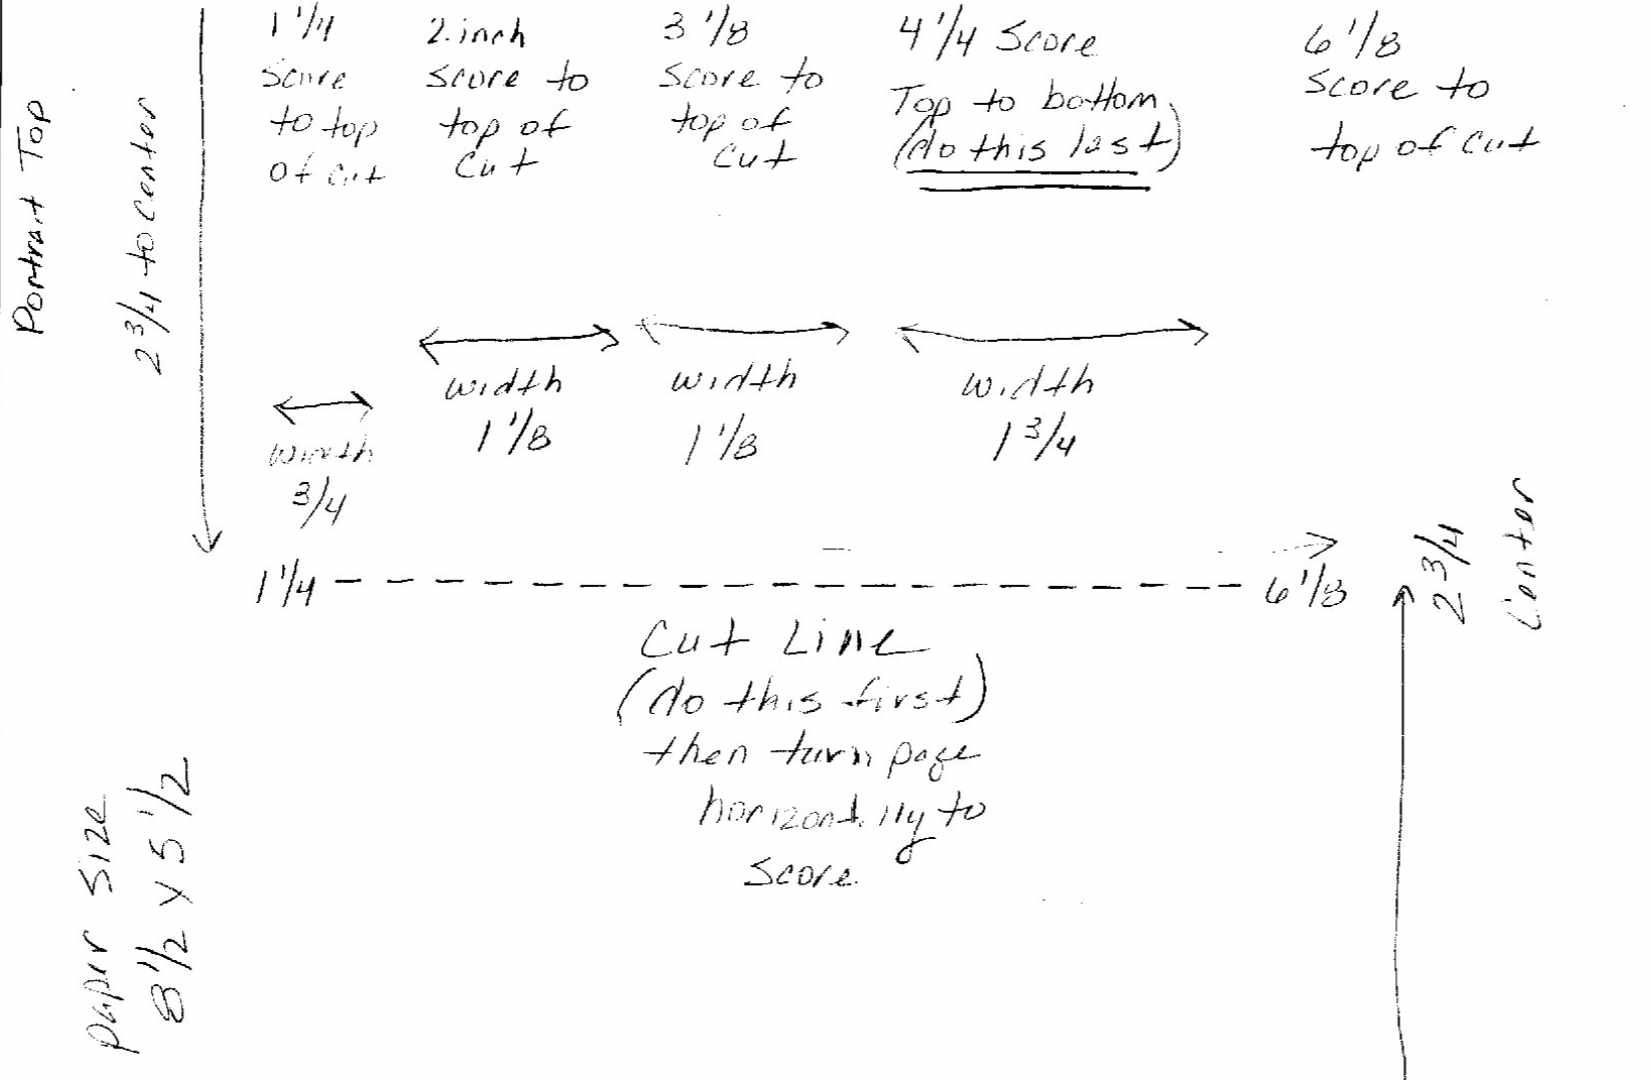 Portrait Top
2 3/4 to center
1 1/4
Score
to top
of cut
2 inch
score to
top of
cut
3 1/8
score to
top of
cut
4 1/4 Score
Top to bottom
(do this last)
6 1/8
score to
top of cut
width
3/4
width
1 1/8
width
1 1/8
width
1 3/4
1 1/4 - - - - - - - - - - - - - - - - - - - 6 1/8
2 3/4
Center
Cut Line
(do this first)
then turn page
horizontally to
score.
paper size
8 1/2 x 5 1/2